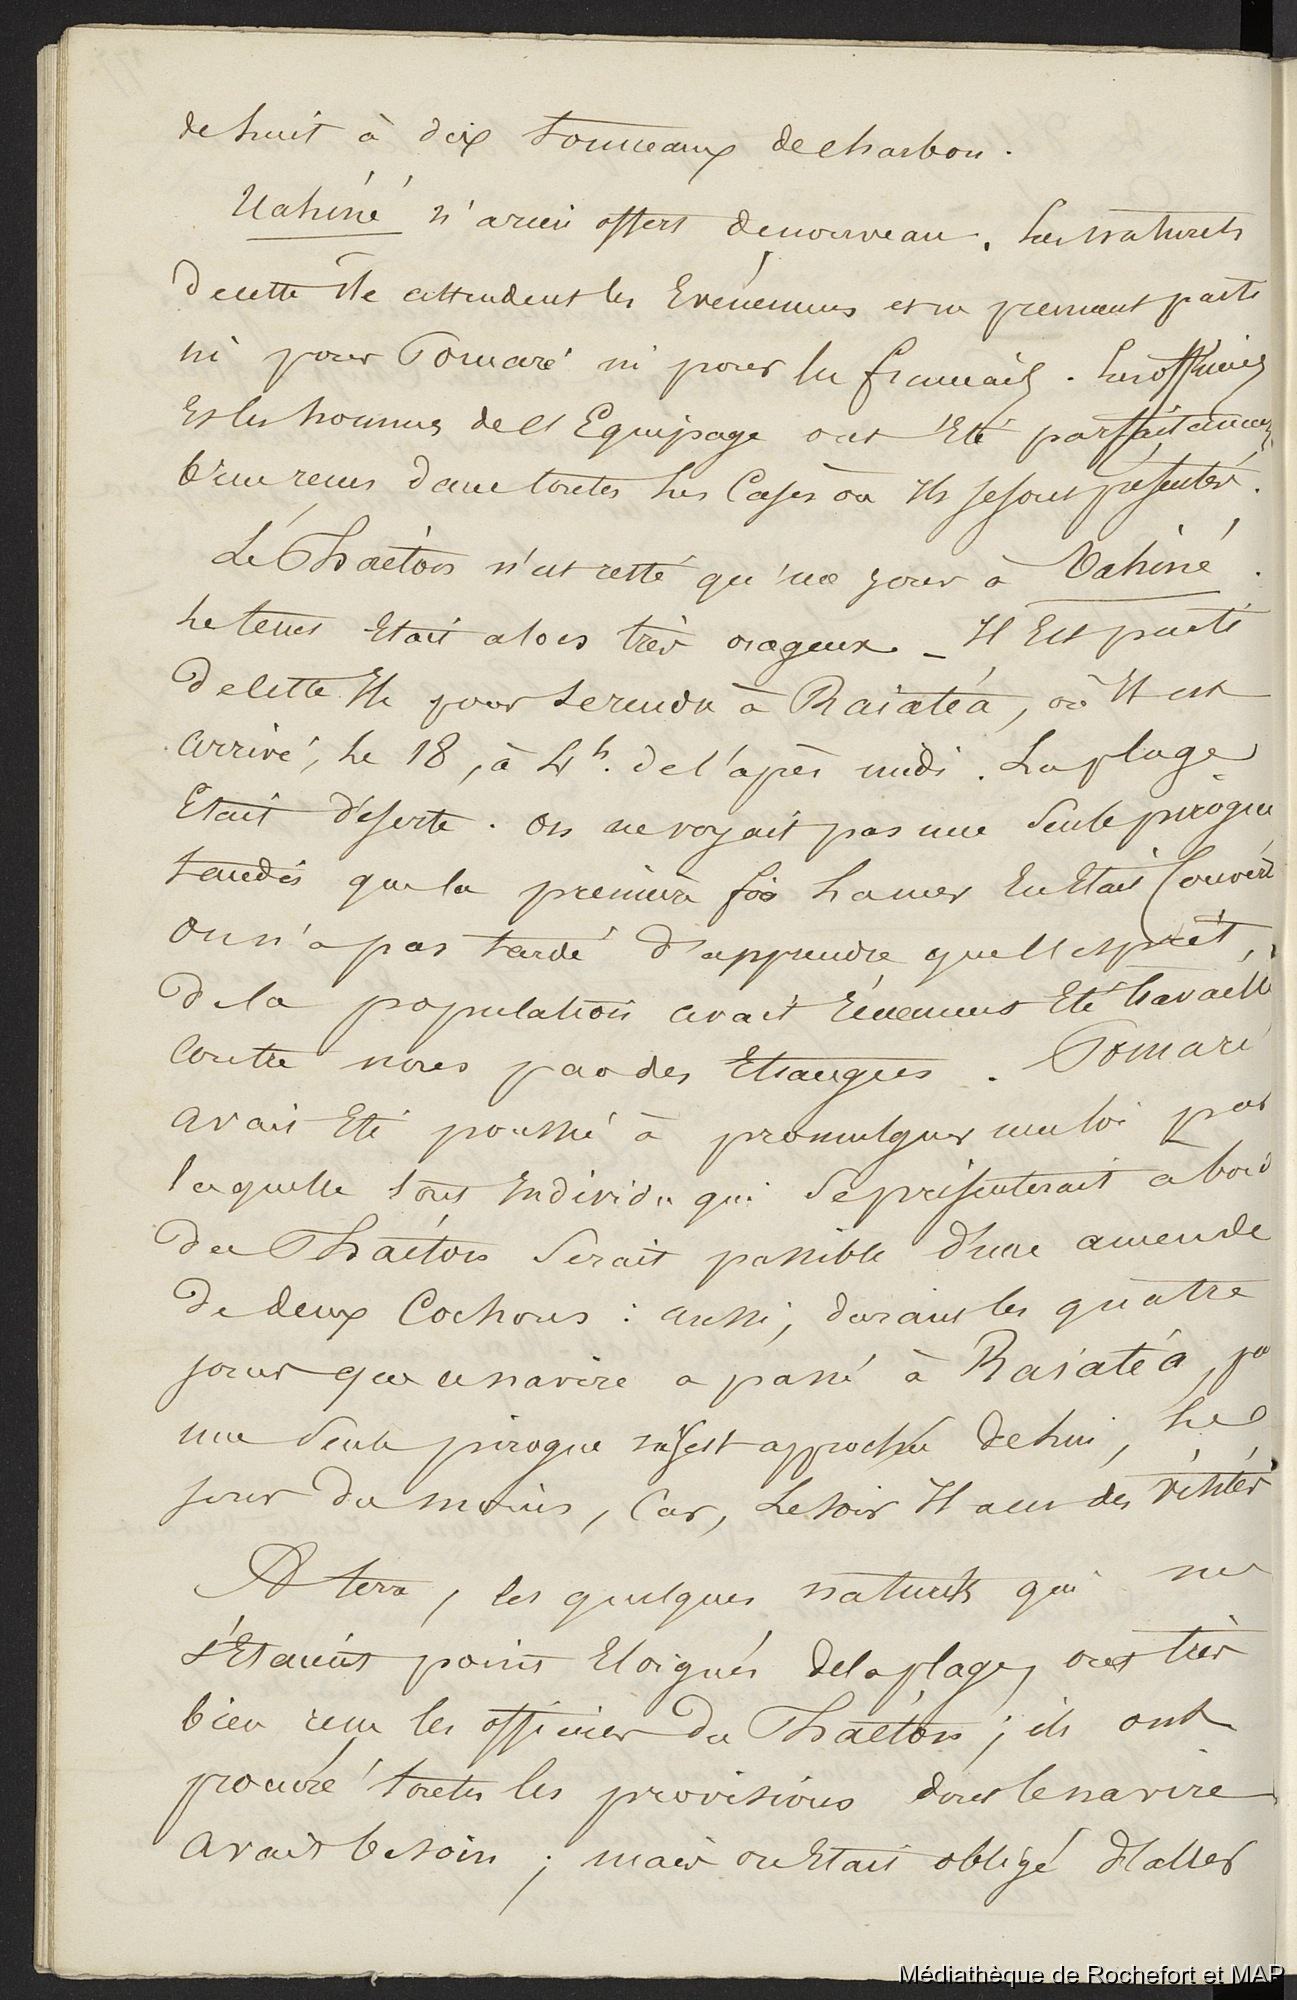 de huit à dix tonneaux de charbon.
Uahiné n'a rien offert de nouveau. Les naturels
de cette île attendent les Evénemens et ne prennent parti
ni pour Pomaré ni pour les français. Les officiers
Et les hommes de l'Equipage ont Eté parfaitement
bien reçus dans toutes les Cases où Ils se sont présentés.
Le Phaéton n'est resté qu'un jour à Uahiné.
Le tems Etait alors très orageux _ Il Est parti
de cette Ile pour se rendre à Raiatéa, où Il est
arrivé, le 18, à 4h. de l'après midi. La plage
Etait déserte. On ne voyait pas une seule pirogue
tandis que la première fois la mer En Etait Couverte
On n'a pas tardé d'apprendre que l'esprit,
de la population avait récemment Eté travaillé
Contre nous par des Etrangers. Pomaré
avait Eté poussée à promulguer une loi par
laquelle tout Individu qui se présenterait a bord
du Phaéton serait passible d'une amende
de deux Cochons : aussi, durant les quatre
jours que ce navire a passé à Raiatéa, pas
une seule pirogue s'est approchée de lui, le
jour du moins, Car, le soir Il a eu des visites
A terre, les quelques naturels qui ne
s'Etaient point Eloignés de la plage, ont très
bien reçu les officiers du Phaéton ; ils ont
procuré toutes les provisions dont le navire
avait besoin ; mais on Etait obligé d'aller
Médiathèque de Rochefort et MAP